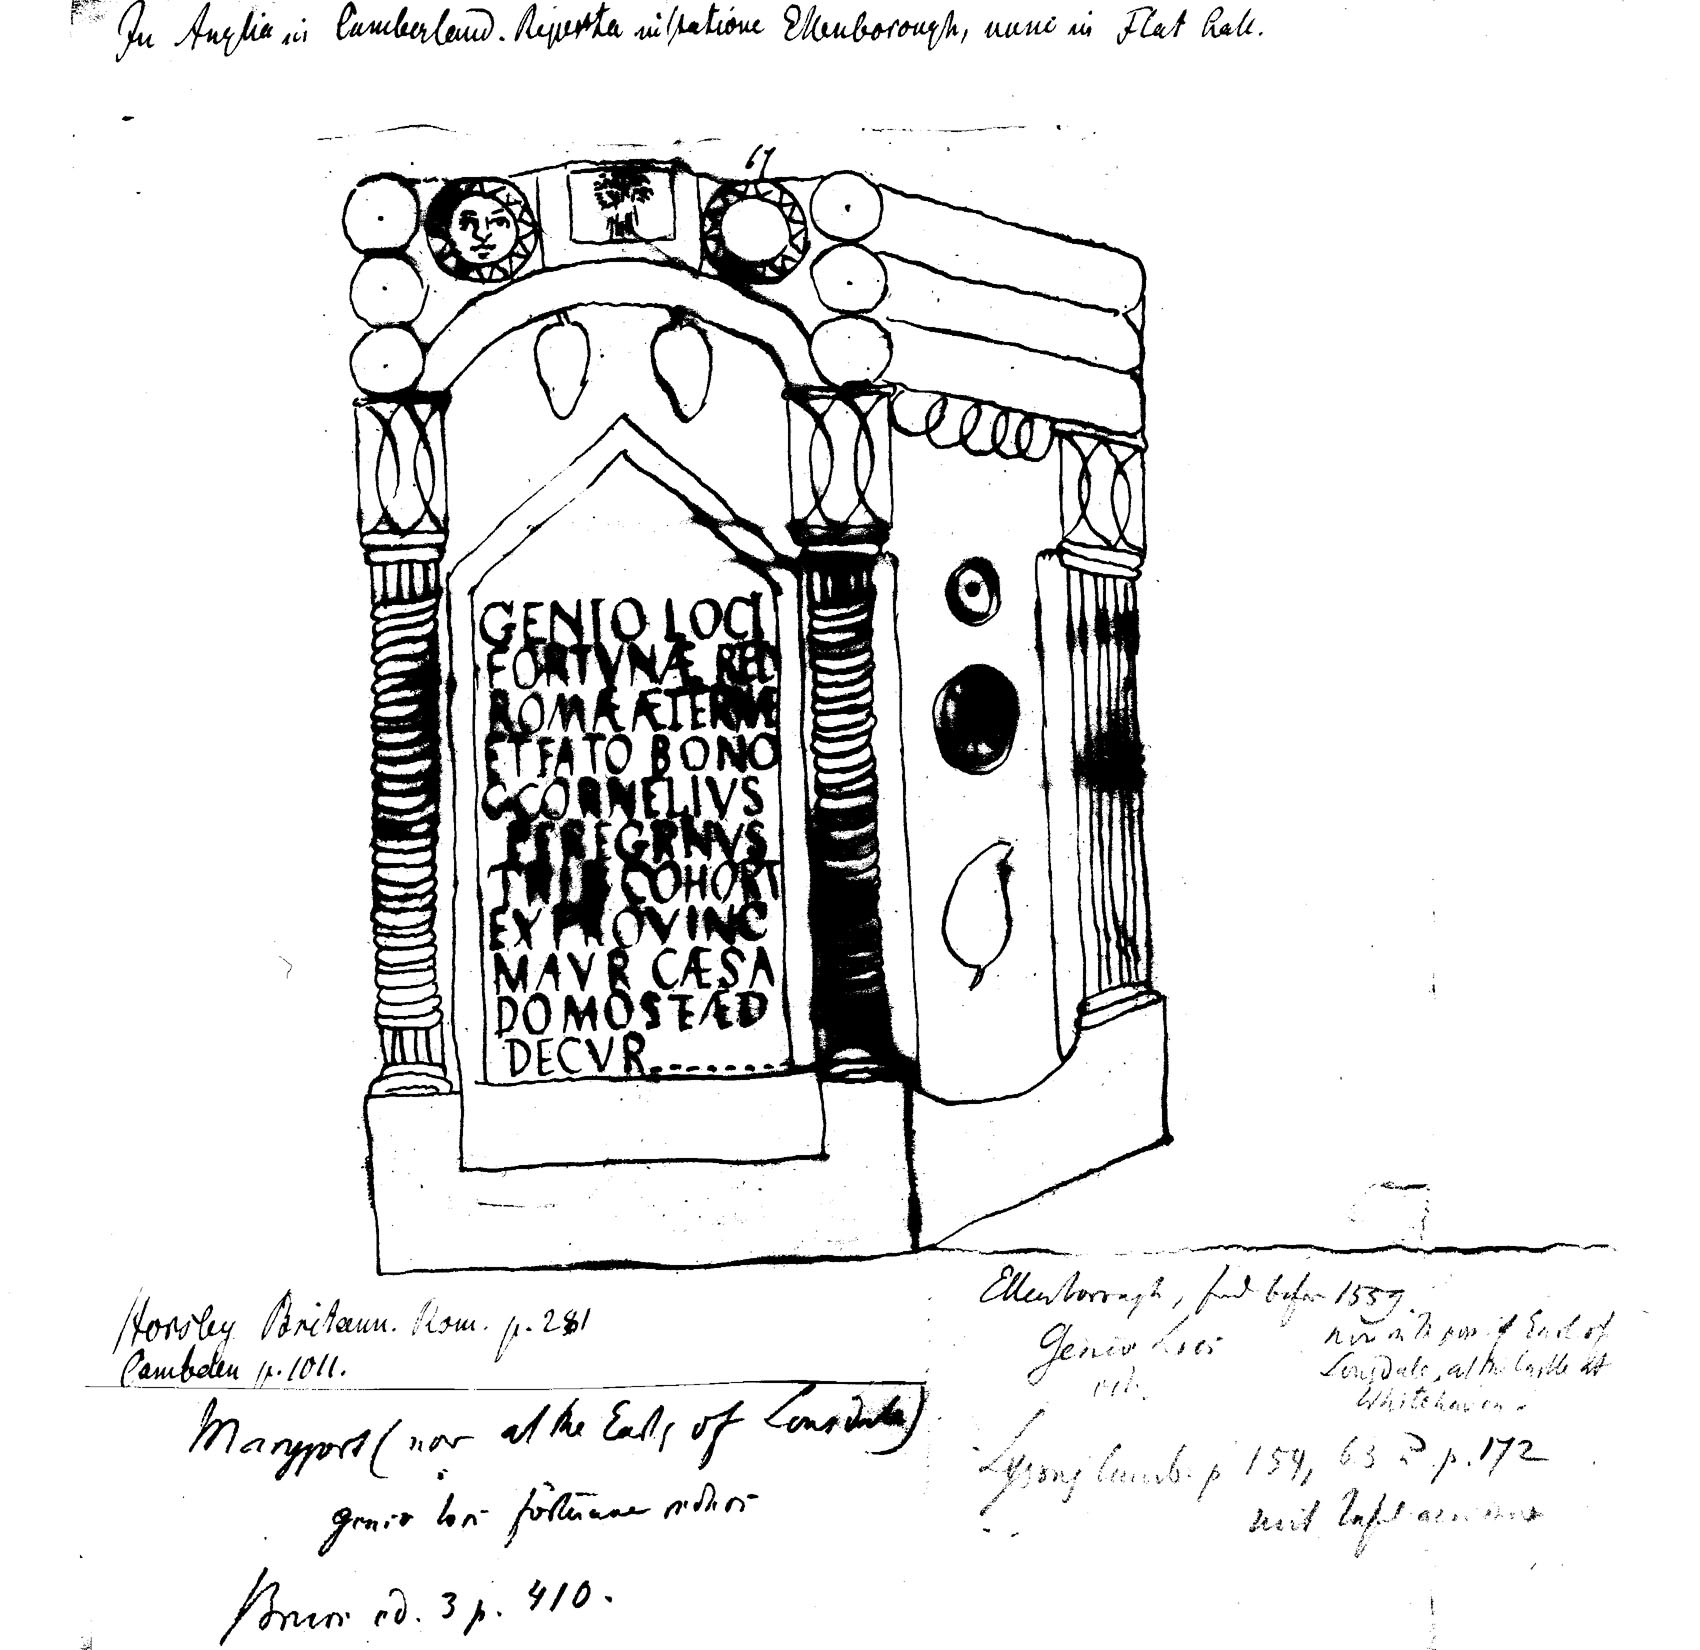 In Anglia in Cumberland. Reperta in statione Ellenborough, nunc in Flat hall.
67
GENIO LOCI
FORTVNÆ RED
ROMÆ ÆTERNÆ
ET FATO BONO
G CORNELIVS
PEREGRINVS
TRIB COHORT
EX PROVINC
MAVR CÆSA
DOMOSTÆD
DECVR
Horsley Britann. Rom. p. 281
Cambden p. 1011.
Maryport (now at the Earls of Lonsdale)
genio loci fortunae reduci
Bruce ed. 3 p. 410.
Ellenborough, fnd before 1559
Genio Loci
now in the poss. of Earl of
Lonsdale, at the Castle at
Whitehaven.
Lysons Cumb. p 154, 63 p. 172
mit